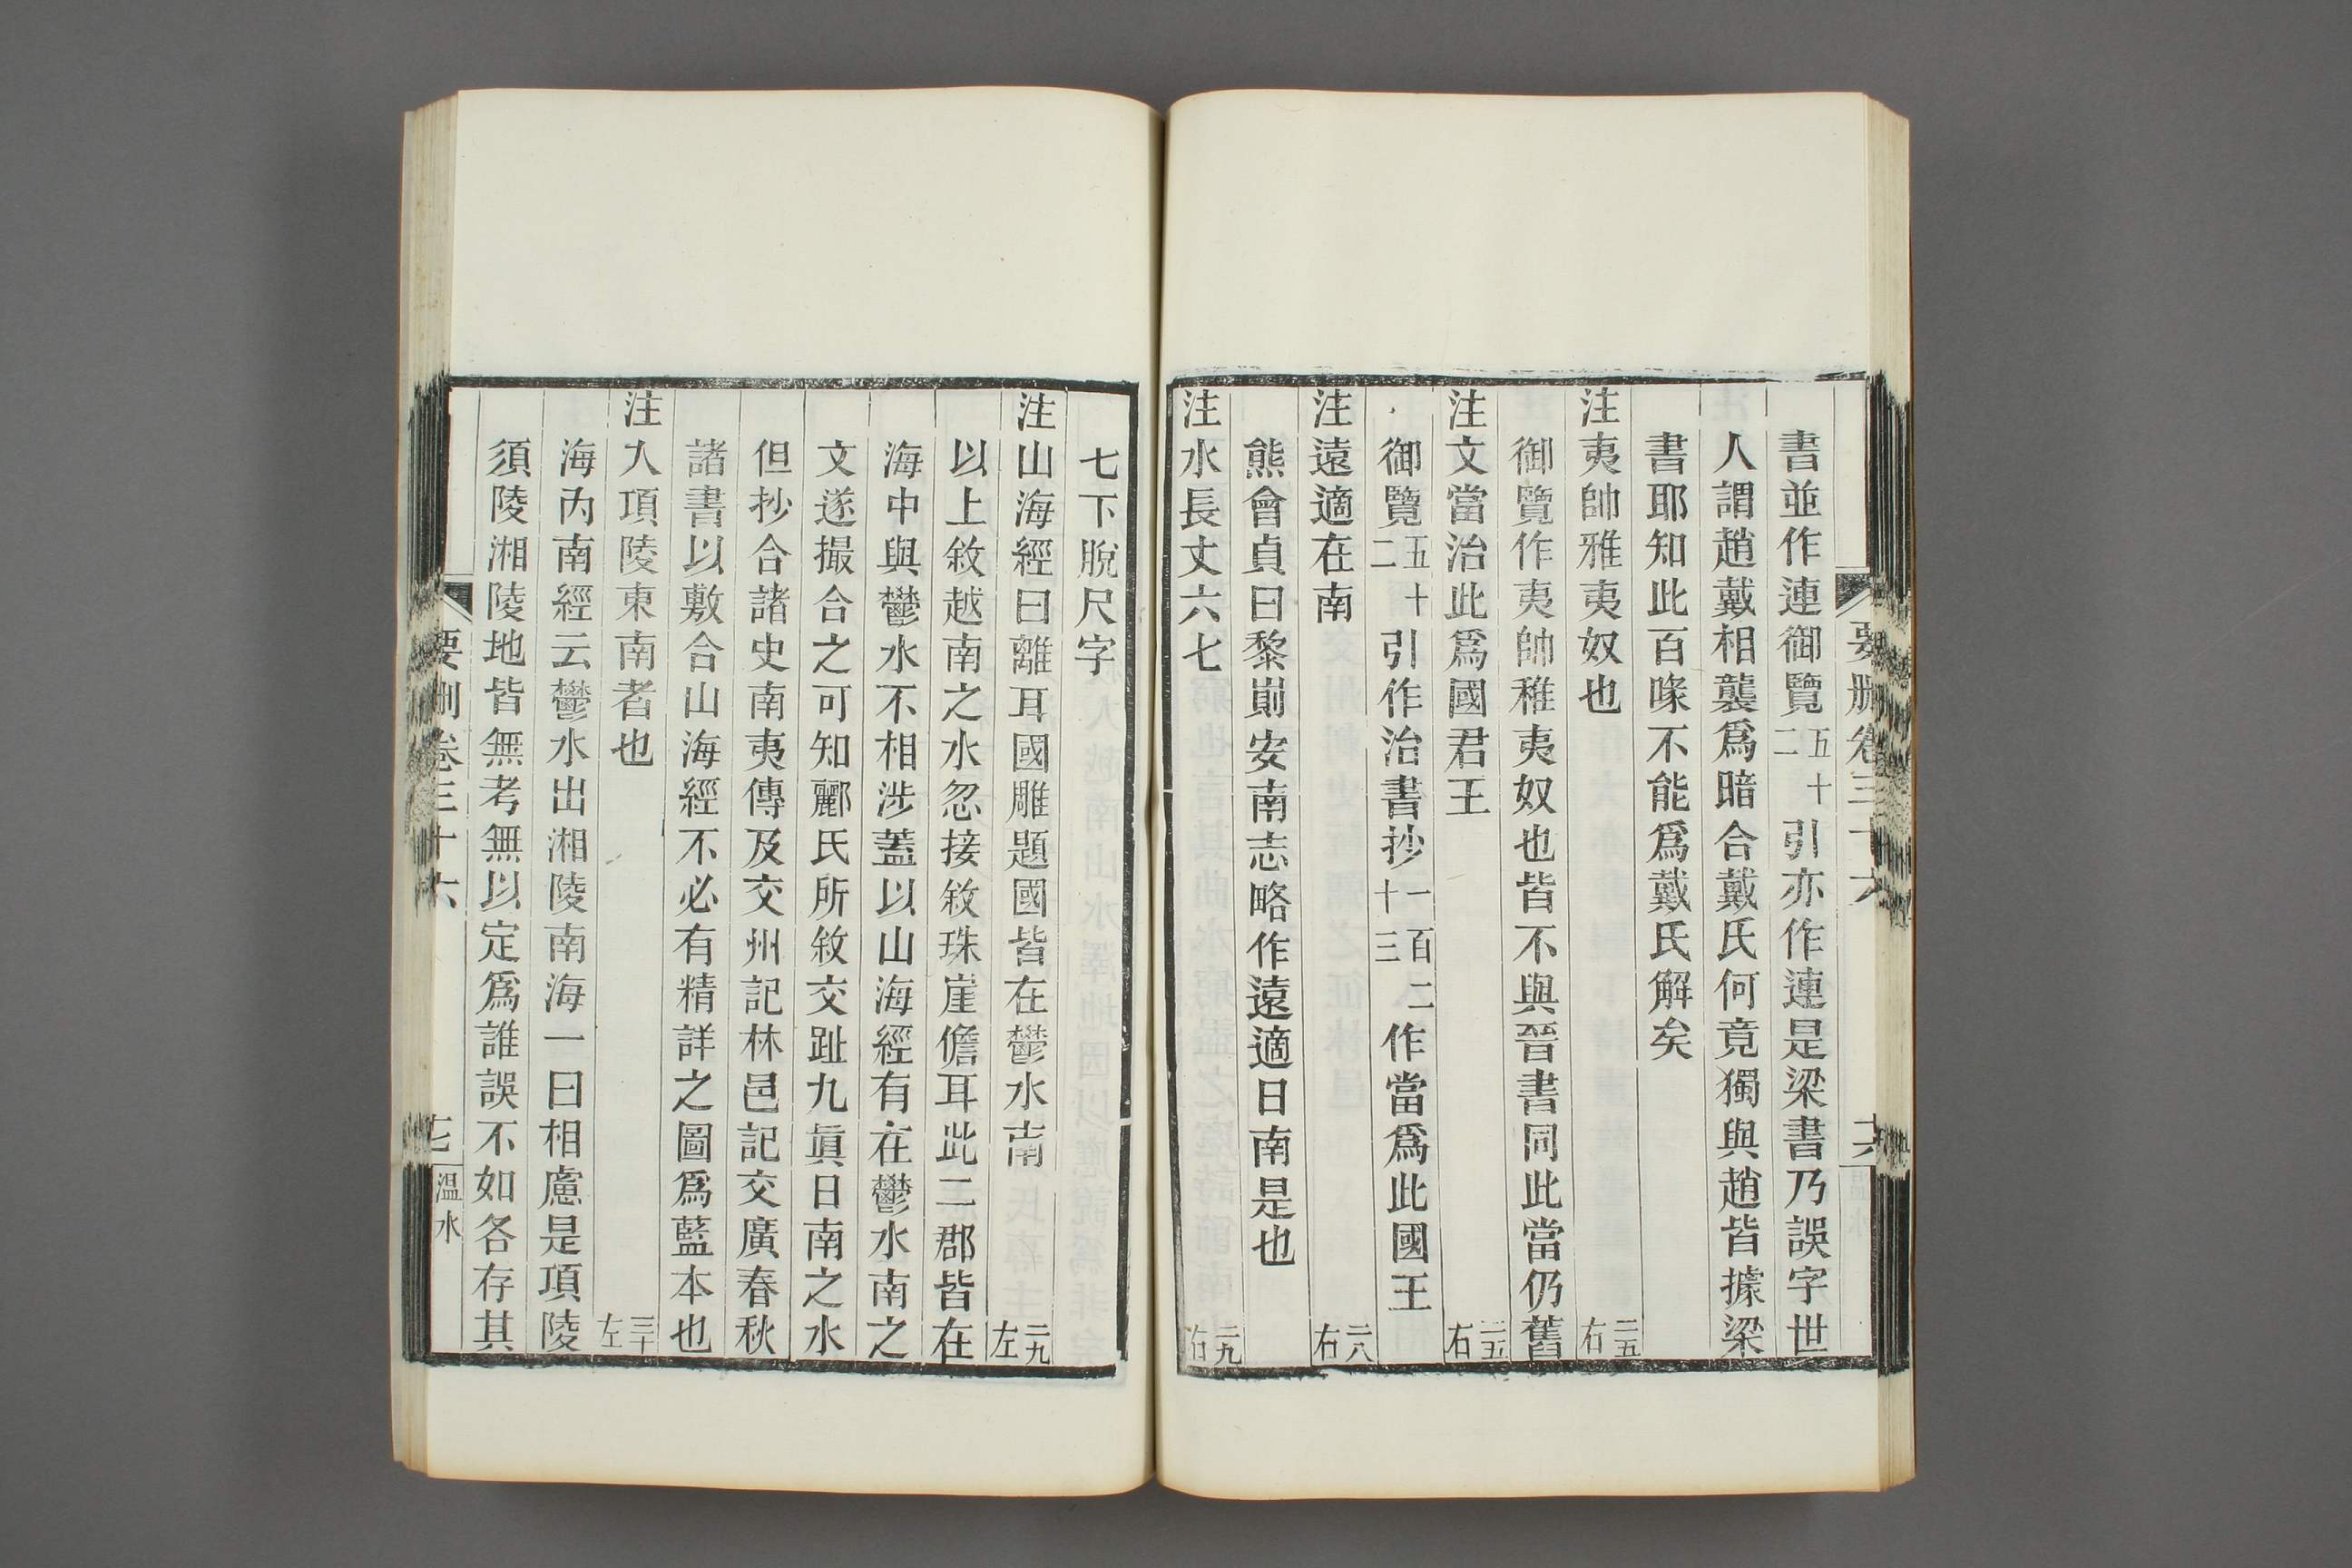 要刪卷三十六
書並作連御覽五十二引亦作連是梁書乃誤字世
人謂趙戴相襲爲暗合戴氏何竟獨與趙皆據梁
書耶知此百喙不能爲戴氏解矣
注夷帥雅夷奴也 二五右
御覽作夷帥稚夷奴也皆不與晉書同此當仍舊
注文當治此爲國君王 二五右
御覽五十二引作治書抄一百二十三作當爲此國王
注遠適在南 二八右
熊會貞曰黎崱安南志略作遠適日南是也
注水長丈六七 二九右
七下脫尺字
注山海經曰離耳國雕題國皆在鬱水南 二九左
以上敘越南之水忽接敘珠崖儋耳此二郡皆在
海中與鬱水不相涉蓋以山海經有在鬱水南之
文遂撮合之可知酈氏所敘交趾九眞日南之水
但抄合諸史南夷傳及交州記林邑記交廣春秋
諸書以敷合山海經不必有精詳之圖爲藍本也
注入項陵東南者也 三十左
海內南經云鬱水出湘陵南海一曰相慮是項陵
須陵湘陵地皆無考無以定爲誰誤不如各存其
要刪卷三十六 十七 溫水